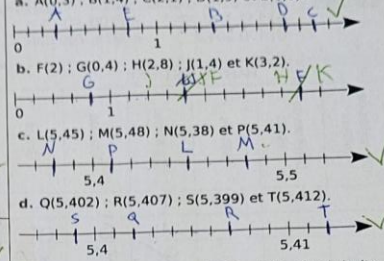 A E B D C
0 1
b. F(2) ; G(0,4) ; H(2,8) ; J(1,4) et K(3,2).
G J F H K
0 1
c. L(5,45) ; M(5,48) ; N(5,38) et P(5,41).
N P L M
5,4 5,5
d. Q(5,402) ; R(5,407) ; S(5,399) et T(5,412).
S Q R T
5,4 5,41